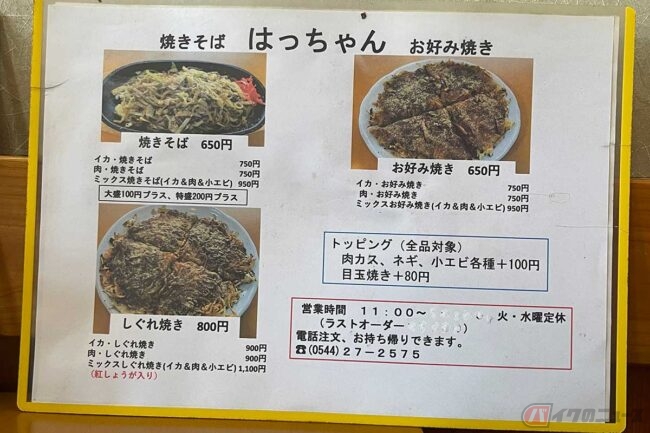 焼きそば はっちゃん お好み焼き
焼きそば 650円
イカ・焼きそば 750円
肉・焼きそば 750円
ミックス焼きそば(イカ&肉&小エビ) 950円
大盛100円プラス、特盛200円プラス
お好み焼き 650円
イカ・お好み焼き 750円
肉・お好み焼き 750円
ミックスお好み焼き(イカ&肉&小エビ) 950円
しぐれ焼き 800円
イカ・しぐれ焼き 900円
肉・しぐれ焼き 900円
ミックスしぐれ焼き(イカ&肉&小エビ) 1,100円
(紅しょうが入り)
トッピング(全品対象)
肉カス、ネギ、小エビ各種+100円
目玉焼き+80円
営業時間 11:00~ 火・水曜定休
(ラストオーダー )
電話注文、お持ち帰りできます。
☎(0544)27-2575
バイクのニュース